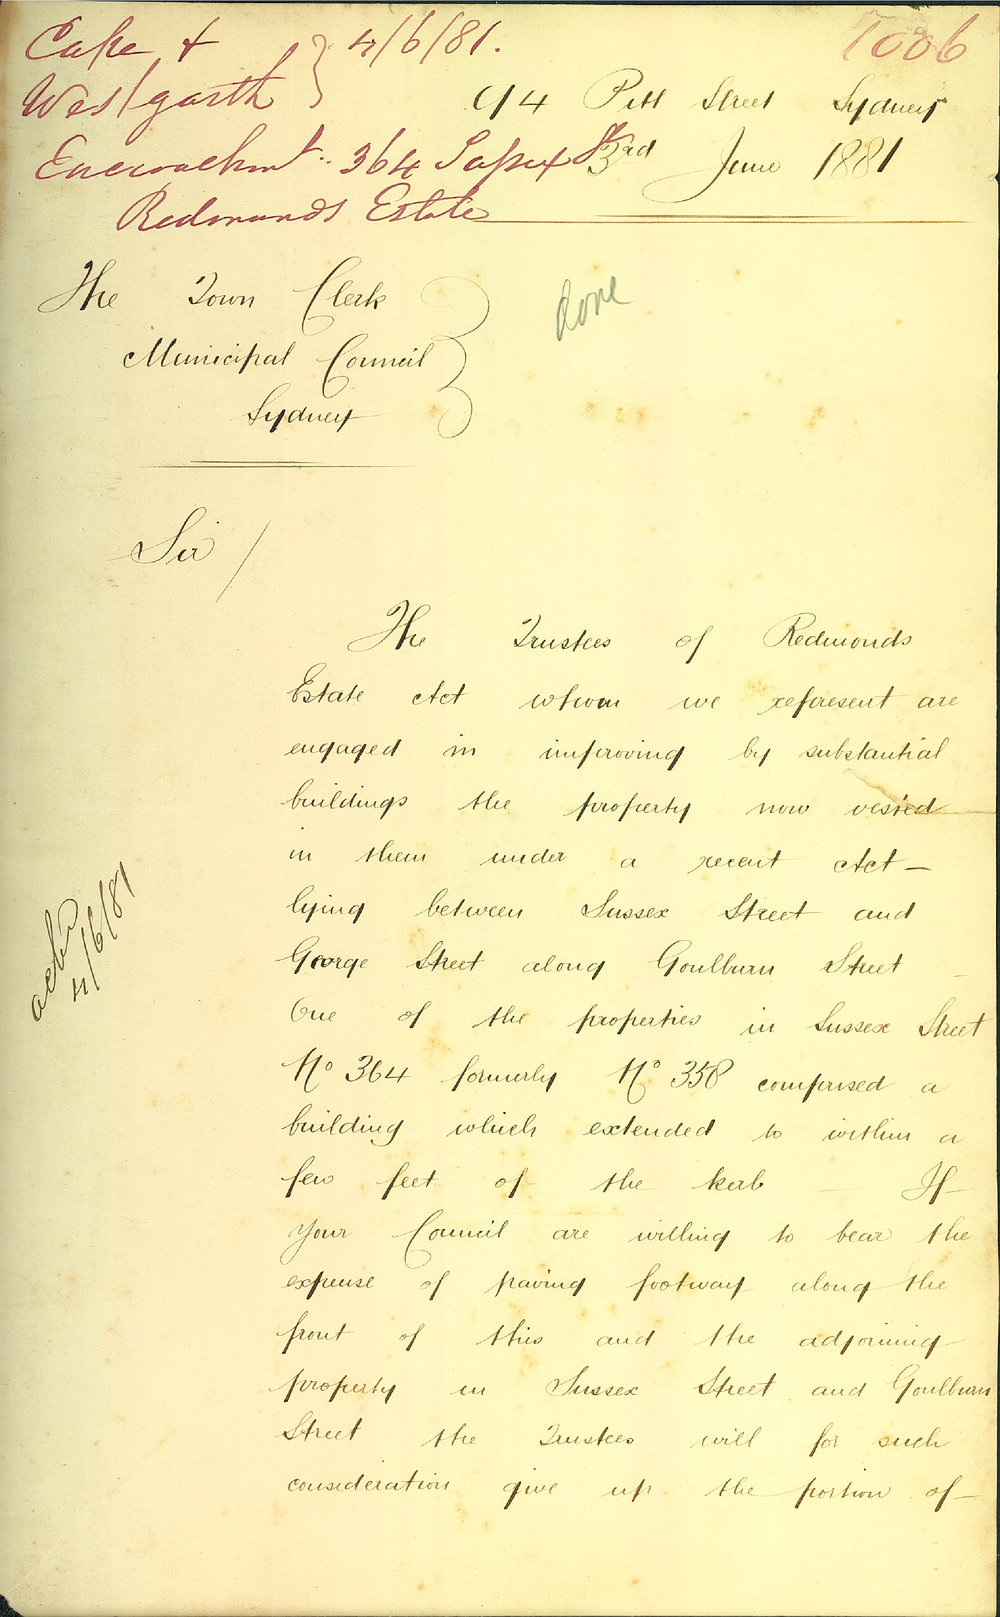 Cape & } 4/6/81.
Westgarth
1006
94 Pitt Street Sydney
Encroachmt. 364 Sussex St
3rd June 1881
Redmonds Estate
The Town Clerk
Municipal Council
Sydney
Done
Sir /
The Trustees of Redmonds
Estate Act whom we represent are
engaged in improving by substantial
buildings the property now vested
in them under a recent Act —
lying between Sussex Street and
George Street along Goulburn Street _
One of the properties in Sussex Street
No 364 formerly No 358 comprised a
building which extended to within a
few feet of the kerb — If
your Council are willing to bear the
expense of paving footway along the
front of this and the adjoining
property in Sussex Street and Goulburn
Street the Trustees will for such
consideration give up the portion of
4/6/81